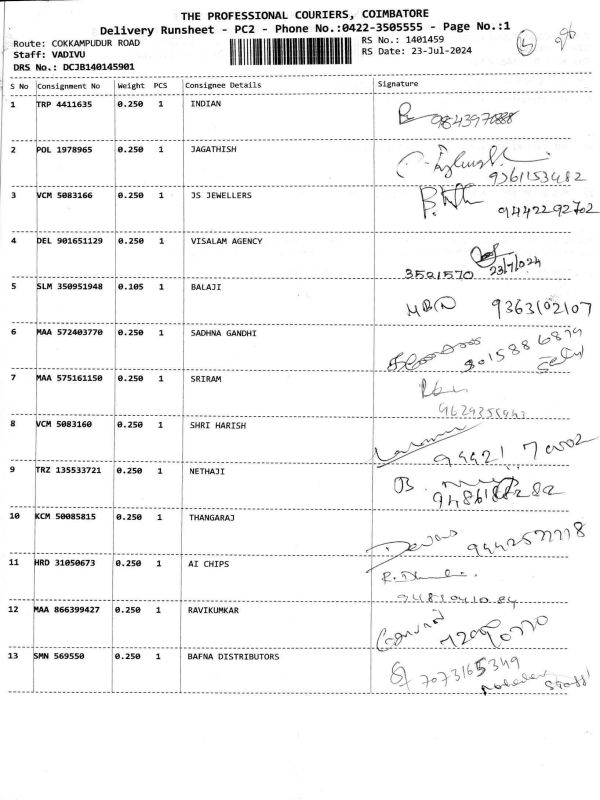 THE PROFESSIONAL COURIERS, COIMBATORE
Delivery Runsheet - PC2 - Phone No.:0422-3505555 - Page No.:1
Route: COKKAMPUDUR ROAD
RS No.: 1401459
Staff: VADIVU
RS Date: 23-Jul-2024
DRS No.: DCJB140145901
S No Consignment No Weight PCS Consignee Details Signature
1 TRP 4411635 0.250 1 INDIAN
9843970888
2 POL 1978965 0.250 1 JAGATHISH
9361153482
3 VCM 5083166 0.250 1 JS JEWELLERS
9442292702
4 DEL 901651129 0.250 1 VISALAM AGENCY
3501570 23/7/024
5 SLM 350951948 0.105 1 BALAJI
9363102107
6 MAA 572403770 0.250 1 SADHNA GANDHI
9015886879
7 MAA 575161150 0.250 1 SRIRAM
8 VCM 5083160 0.250 1 SHRI HARISH
9 TRZ 135533721 0.250 1 NETHAJI
10 KCM 50085815 0.250 1 THANGARAJ
11 HRD 31050673 0.250 1 AI CHIPS
12 MAA 866399427 0.250 1 RAVIKUMKAR
13 SMN 569550 0.250 1 BAFNA DISTRIBUTORS
7073165349